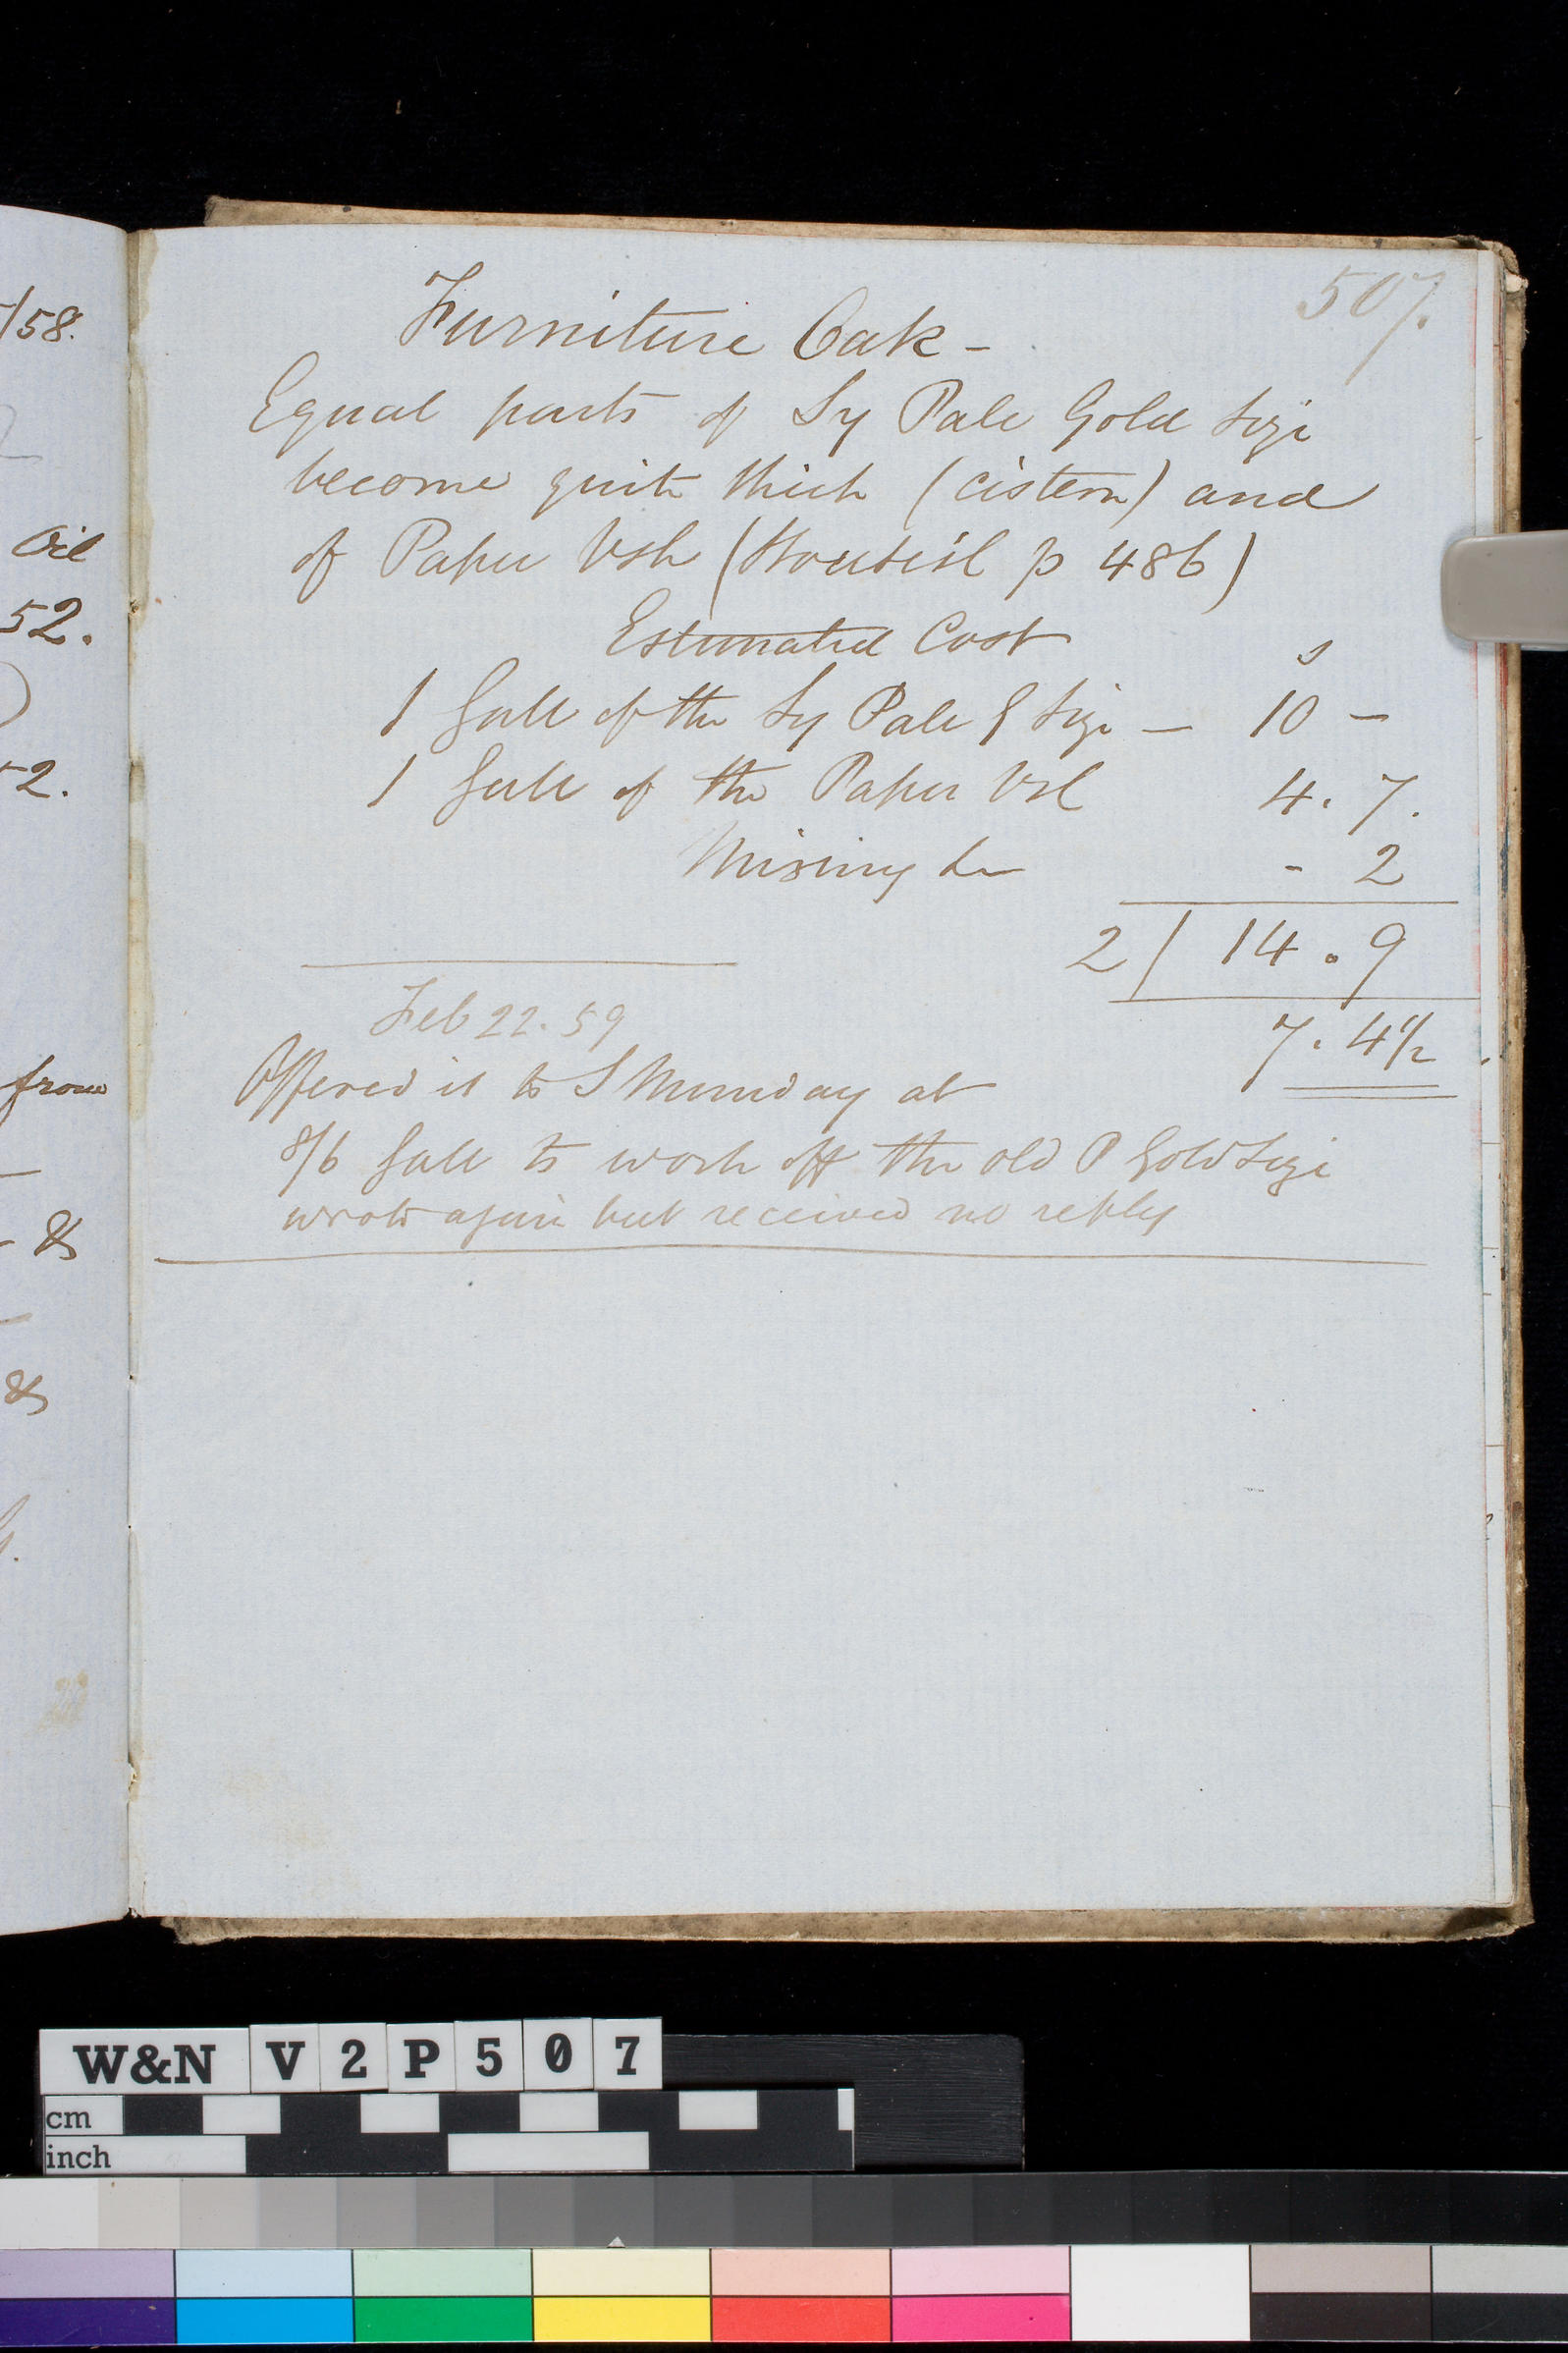 /58.
Oil
52.
52.
from
&
&
507.
Furniture Oak -
Equal parts of Sy Pale Gold Size
become quite thick (cistern) and
of Paper Vsh ( p 486)
Estimated Cost
s
1 Gall of the Sy Pale G Size — 10 —
1 Gall of the Paper Vsh 4. 7.
Mixing &c - 2
2 | 14. 9
7. 4 1/2
Feb 22. 59
Offered it to S Munday at
8/6 Gall to work off the old P Gold Size
wrote again but received no reply
W&N V2P507
cm
inch